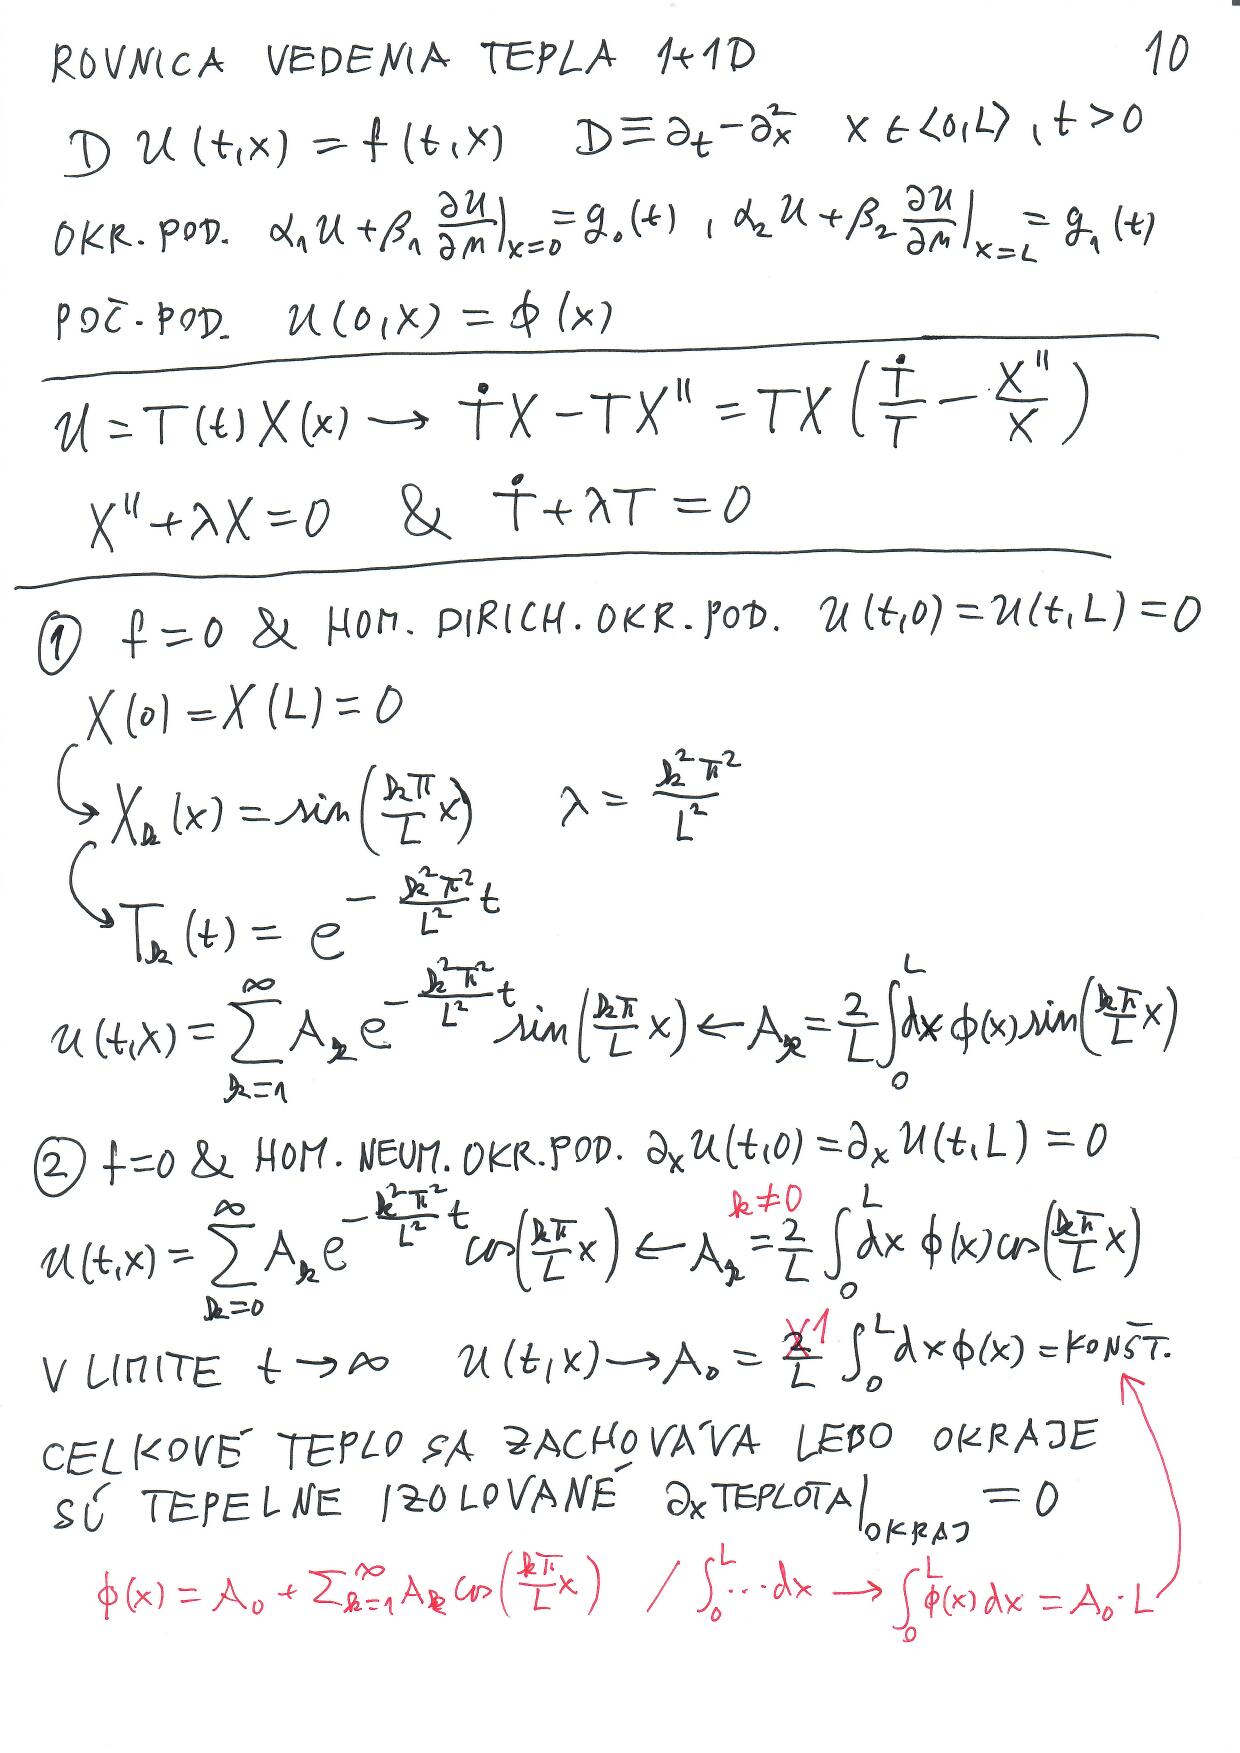 ROVNICA VEDENIA TEPLA 1+1D 10
D u(t,x) = f(t,x) D≡∂_t−∂_x^2 x∈<0,L>, t>0
OKR. POD. α_1 u + β_1 ∂u/∂n|_{x=0} = g_0(t), α_2 u + β_2 ∂u/∂n|_{x=L} = g_1(t)
POČ. POD. u(0,x) = ϕ(x)
u = T(t)X(x) → ṪX − TX'' = TX(Ṫ/T − X''/X)
X''+λX=0 & Ṫ+λT=0
① f=0 & HOM. DIRICH. OKR. POD. u(t,0)=u(t,L)=0
X(0)=X(L)=0
X_k(x) = sin(kπ/L x) λ = k^2π^2/L^2
T_k(t) = e^{−k^2π^2/L^2 t}
u(t,x) = ∑_{k=1}^∞ A_k e^{−k^2π^2/L^2 t} sin(kπ/L x) ← A_k = 2/L ∫_0^L dx ϕ(x) sin(kπ/L x)
② f=0 & HOM. NEUM. OKR. POD. ∂_x u(t,0) = ∂_x u(t,L) = 0
k≠0
u(t,x) = ∑_{k=0}^∞ A_k e^{−k^2π^2/L^2 t} cos(kπ/L x) ← A_k = 2/L ∫_0^L dx ϕ(x) cos(kπ/L x)
V LIMITE t→∞ u(t,x)→A_0 = 1/L ∫_0^L dx ϕ(x) = KONŠT.
CELKOVÉ TEPLO SA ZACHOVÁVA LEBO OKRAJE
SÚ TEPELNE IZOLOVANÉ ∂_x TEPLOTA|_{OKRAJ} = 0
ϕ(x) = A_0 + ∑_{k=1}^∞ A_k cos(kπ/L x) / ∫_0^L ... dx → ∫_0^L ϕ(x)dx = A_0·L